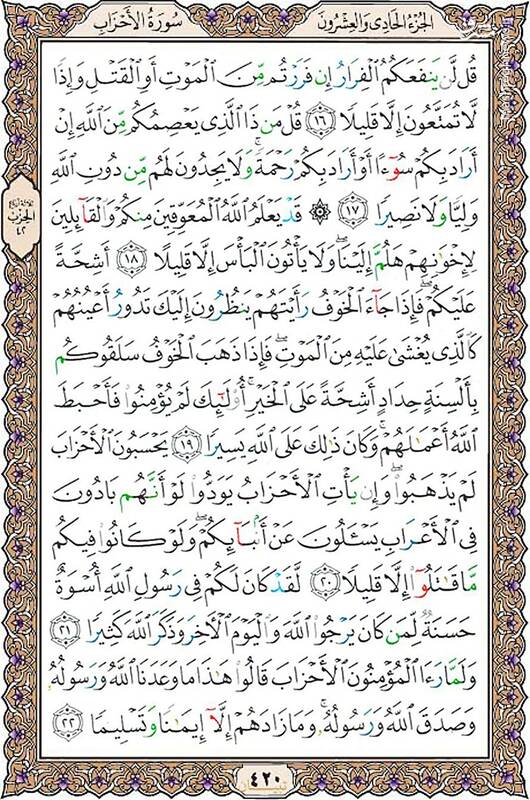 الجُزءُ الحَادِی وَالعِشرُونَ
سُورَةُ الأَحزَابِ
قُل لَّن يَنفَعَكُمُ ٱلْفِرَارُ إِن فَرَرْتُم مِّنَ ٱلْمَوْتِ أَوِ ٱلْقَتْلِ وَإِذًا
لَّا تُمَتَّعُونَ إِلَّا قَلِيلًا ١٦ قُلْ مَن ذَا ٱلَّذِى يَعْصِمُكُم مِّنَ ٱللَّهِ إِنْ
أَرَادَ بِكُمْ سُوٓءًا أَوْ أَرَادَ بِكُمْ رَحْمَةً ۚ وَلَا يَجِدُونَ لَهُم مِّن دُونِ ٱللَّهِ
وَلِيًّا وَلَا نَصِيرًا ١٧ ۞ قَدْ يَعْلَمُ ٱللَّهُ ٱلْمُعَوِّقِينَ مِنكُمْ وَٱلْقَآئِلِينَ
لِإِخْوَٰنِهِمْ هَلُمَّ إِلَيْنَا ۖ وَلَا يَأْتُونَ ٱلْبَأْسَ إِلَّا قَلِيلًا ١٨ أَشِحَّةً
عَلَيْكُمْ ۖ فَإِذَا جَآءَ ٱلْخَوْفُ رَأَيْتَهُمْ يَنظُرُونَ إِلَيْكَ تَدُورُ أَعْيُنُهُمْ
كَٱلَّذِى يُغْشَىٰ عَلَيْهِ مِنَ ٱلْمَوْتِ ۖ فَإِذَا ذَهَبَ ٱلْخَوْفُ سَلَقُوكُم
بِأَلْسِنَةٍ حِدَادٍ أَشِحَّةً عَلَى ٱلْخَيْرِ ۚ أُو۟لَٰٓئِكَ لَمْ يُؤْمِنُوا۟ فَأَحْبَطَ
ٱللَّهُ أَعْمَٰلَهُمْ ۚ وَكَانَ ذَٰلِكَ عَلَى ٱللَّهِ يَسِيرًا ١٩ يَحْسَبُونَ ٱلْأَحْزَابَ
لَمْ يَذْهَبُوا۟ ۖ وَإِن يَأْتِ ٱلْأَحْزَابُ يَوَدُّوا۟ لَوْ أَنَّهُم بَادُونَ
فِى ٱلْأَعْرَابِ يَسْـَٔلُونَ عَنْ أَنۢبَآئِكُمْ ۖ وَلَوْ كَانُوا۟ فِيكُم
مَّا قَٰتَلُوٓا۟ إِلَّا قَلِيلًا ٢٠ لَّقَدْ كَانَ لَكُمْ فِى رَسُولِ ٱللَّهِ أُسْوَةٌ
حَسَنَةٌ لِّمَن كَانَ يَرْجُوا۟ ٱللَّهَ وَٱلْيَوْمَ ٱلْـَٔاخِرَ وَذَكَرَ ٱللَّهَ كَثِيرًا ٢١
وَلَمَّا رَءَا ٱلْمُؤْمِنُونَ ٱلْأَحْزَابَ قَالُوا۟ هَٰذَا مَا وَعَدَنَا ٱللَّهُ وَرَسُولُهُۥ
وَصَدَقَ ٱللَّهُ وَرَسُولُهُۥ ۚ وَمَا زَادَهُمْ إِلَّآ إِيمَٰنًا وَتَسْلِيمًا ٢٢
الحزب
٤٢
٤٢٠